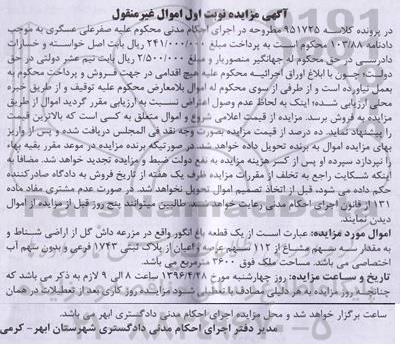 آگهی مزایده نوبت اول اموال غیرمنقول
در پرونده کلاسه ۹۵۱۷۲۵ مطروحه در اجرای احکام مدنی محکوم علیه صفرعلی عسگری به موجب
دادنامه ۱۰۳/۸۸ محکوم است به پرداخت مبلغ ۲۴۱/۰۰۰/۰۰۰ ریال بابت اصل خواسته و خسارات
دادرسی در حق محکوم له جهانگیر منصوریار و مبلغ ۲/۵۰۰/۰۰۰ ریال بابت نیم عشر دولتی در حق
دولت؛ چون با ابلاغ اوراق اجرائیه محکوم علیه هیچ اقدامی در جهت فروش و پرداخت محکوم به
بعمل نیاورده است و از طرفی از سوی محکوم له اموال بلامعارض محکوم علیه توقیف و از طریق خبره
محلی ارزیابی شده؛ اینک به لحاظ عدم وصول اعتراض نسبت به ارزیابی مقرر گردید اموال از طریق
مزایده به فروش برسد. مزایده از قیمت اعلامی شروع و اموال متعلق به کسی است که بالاترین قیمت
را پیشنهاد نماید. ده درصد از قیمت مزایده بصورت وجه نقد فی المجلس دریافت شده و پس از واریز
بهای مزایده اموال به برنده تحویل داده خواهد شد. در صورتیکه برنده مزایده در موعد مقرر بقیه بهاء
را نپردازد سپرده او پس از کسر هزینه مزایده به نفع دولت ضبط و مزایده تجدید خواهد شد. مضافا به
اینکه شکایت راجع به تخلف از مقررات مزایده ظرف یک هفته از تاریخ فروش به دادگاه صادرکننده
حکم داده می شود، قبل از اتخاذ تصمیم اموال تحویل نخواهد شد. در صورت عدم مشتری مفاد ماده
۱۳۱ از قانون اجرای احکام مدنی رعایت خواهد شد. طالبین میتوانند پنج روز قبل از مزایده از اموال
دیدن نمایند.
اموال مورد مزایده: عبارت است از یک قطعه باغ انگور واقع در مزرعه داش گل از اراضی شناط و
به مقدار سه سهم مشاع از ۱۱۲ سهم عرصه و اعیان از پلاک ثبتی ۱۷۴۳ فرعی و بدون سهم آب
اختصاصی می باشد. مساحت ملک فوق ۳۶۰۰ مترمربع می باشد.
تاریخ و ساعت مزایده: روز چهارشنبه مورخ ۱۳۹۶/۴/۲۸ ساعت ۸ الی ۹ لازم به ذکر می باشد که
چنانچه روز مزایده به هر دلیلی مصادف با تعطیلی شود مزایده روز کاری بعد از تعطیلات در همان
ساعت برگزار خواهد شد و محل مزایده اجرای احکام مدنی دادگستری ابهر می باشد.
مدیر دفتر اجرای احکام مدنی دادگستری شهرستان ابهر- کرمی